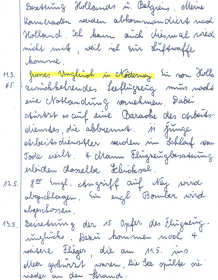 Besetzung Hollands u. Belgiens. Meine
Kameraden werden abkommandiert nach
Holland. Ich kann auch diesmal wieder
nicht mit, weil ich zur Luftwaffe
komme.
11.5. Grosses Unglück in Nölderney. Ein von Holl.
zurückkehrendes Jagdflugzeug muss wohl
eine Notlandung vornehmen. Dabei
stürzt es auf eine Baracke des Arbeits-
dienstes, die abbrennt. 11 junge
Arbeitsdienstler werden im Schlaf vom
Tode ereilt. 4 Mann Flugzeugbesatzung
erleiden dasselbe Schicksal.
12.5. Engl. Angriff auf Ney wird
abgeschlagen. Ein engl. Bomber wird
abgeschossen.
13.5. Beisetzung der 15 Opfer des Flugzeug-
unglücks. Dazu kommen noch 4
weitere Flieger die am 11.5. ins
Meer gestürzt waren. Die See spülte sie
wieder an den Strand.